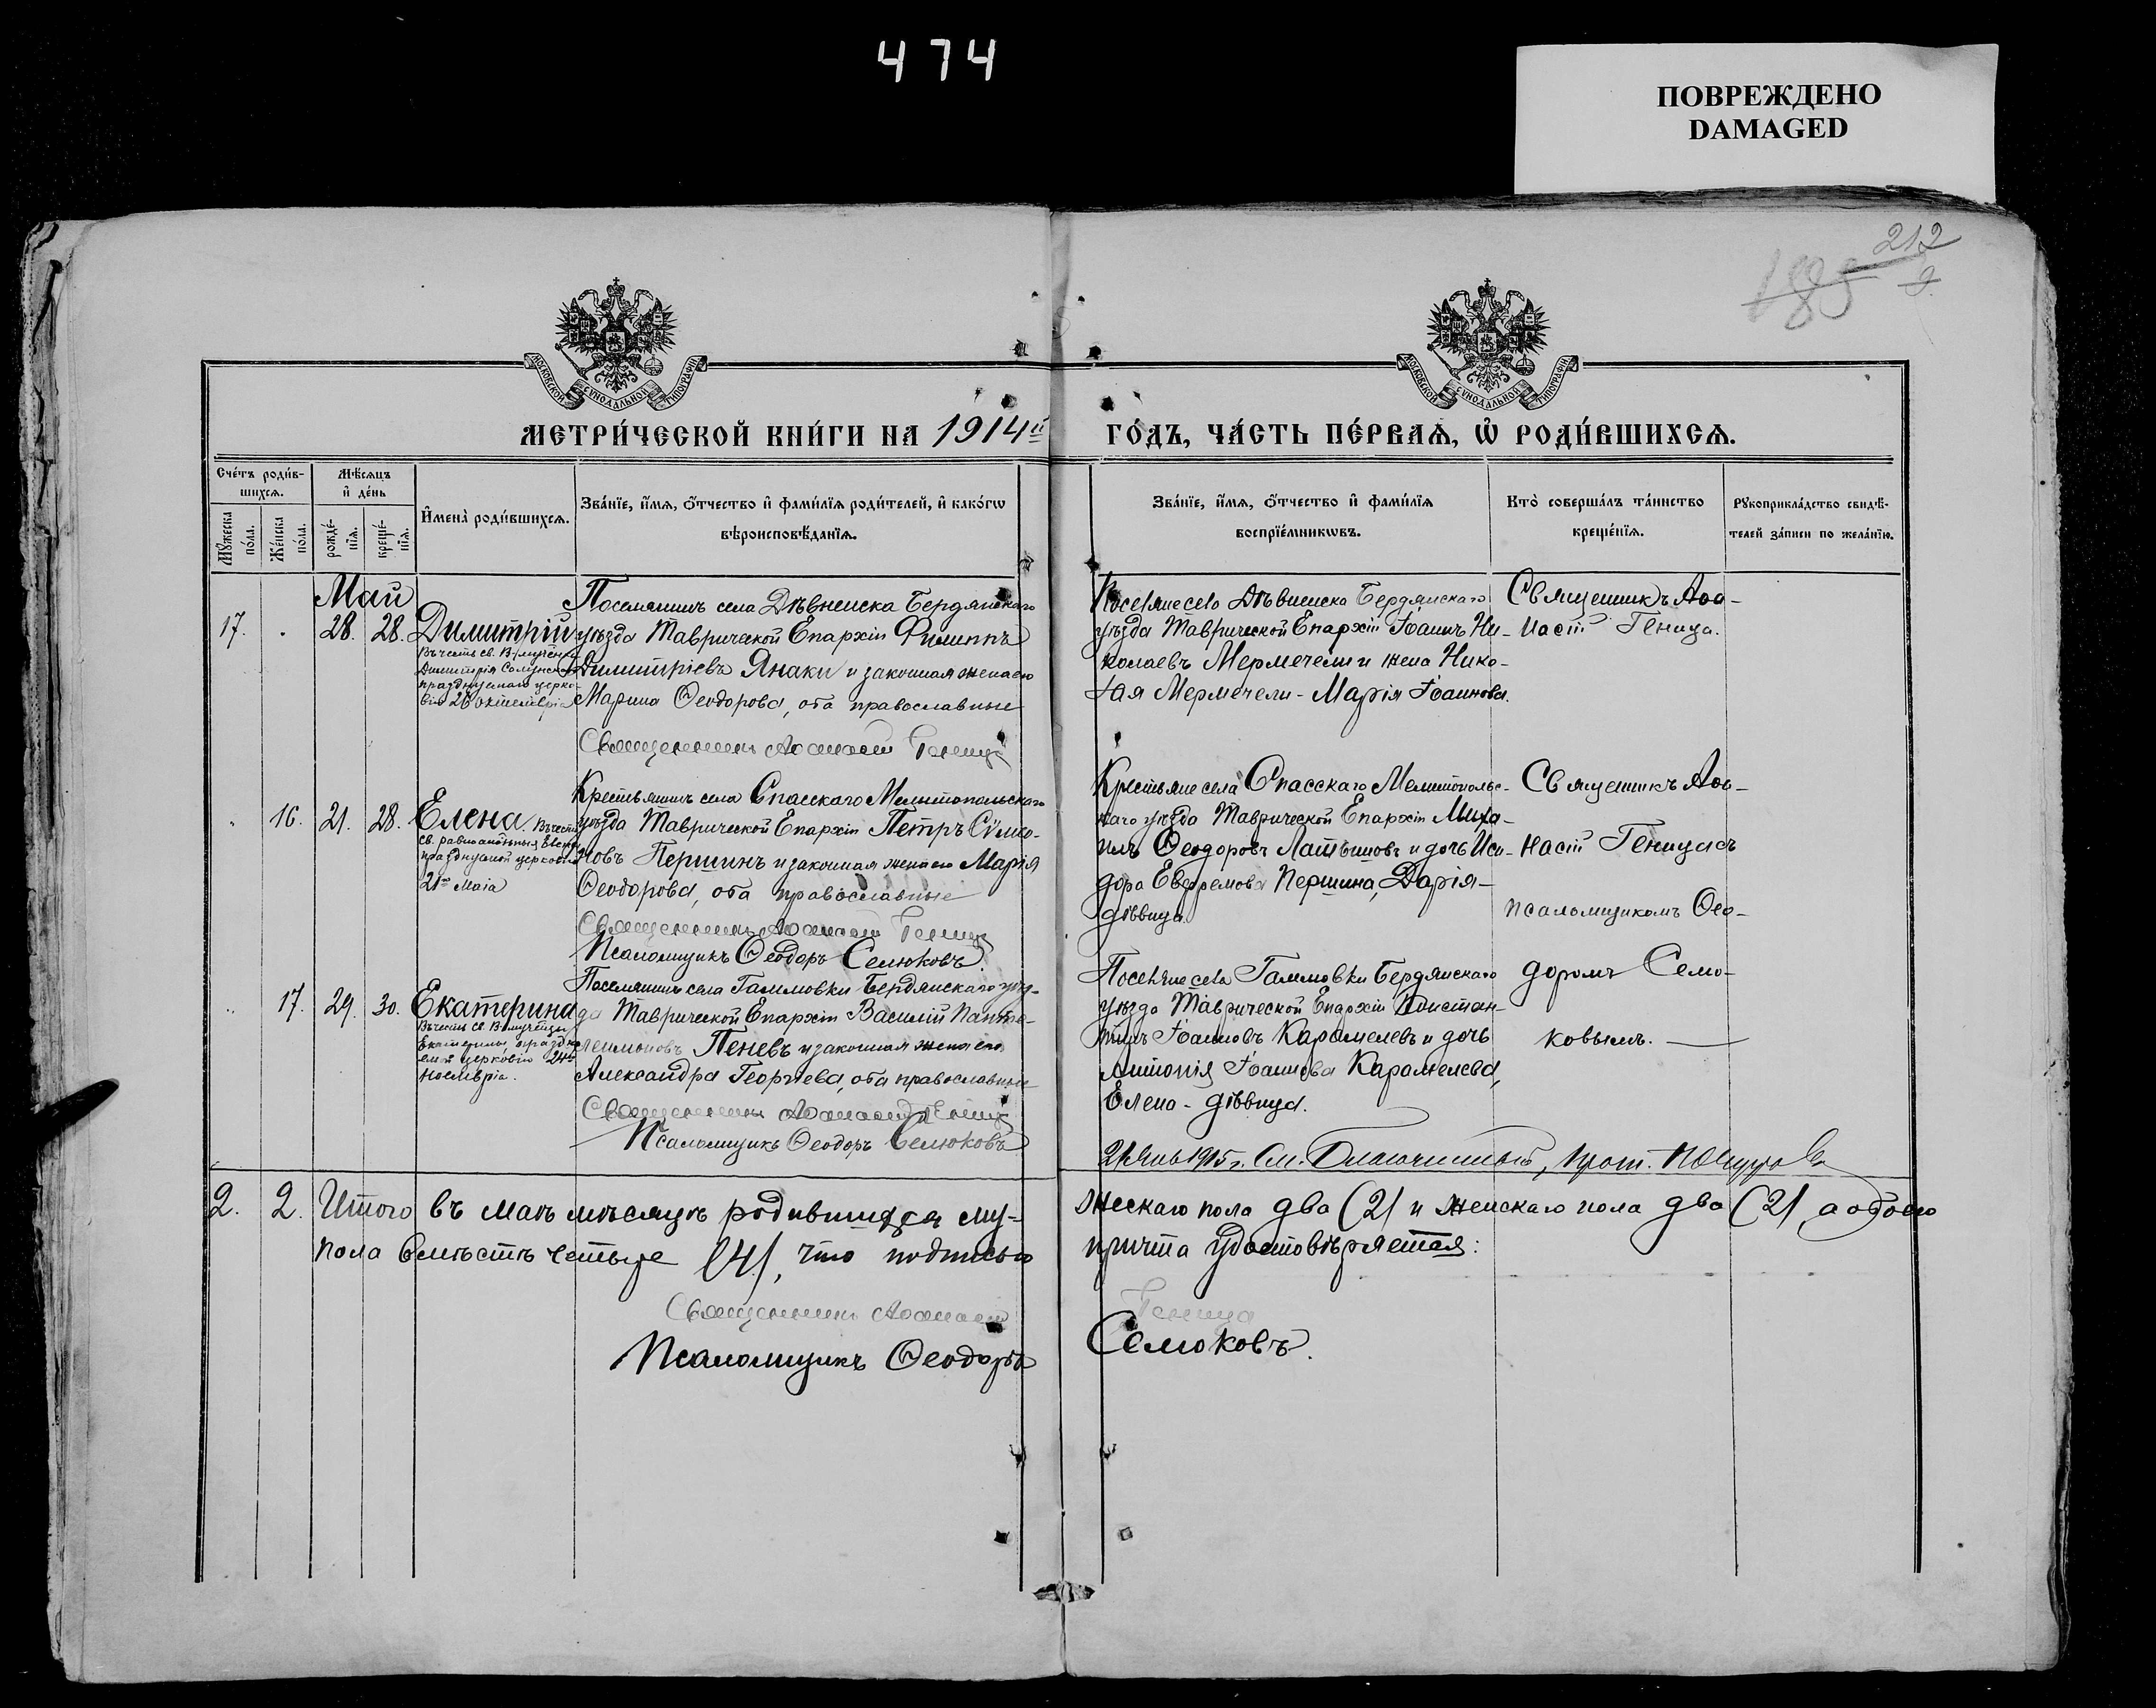 474
ПОВРЕЖДЕНО
DAMAGED
212
185
МОСКОВСКОЙ СѴНОДАЛЬНОЙ ТИПОГРАФІИ
МОСКОВСКОЙ СѴНОДАЛЬНОЙ ТИПОГРАФІИ
МЕТРИ́ЧЕСКОЙ КНИ́ГИ НА 1914й ГО́ДЪ, ЧА́СТЬ ПЕ́РВАЯ, Ѡ҆ РОДИ́ВШИХСЯ.
Сче́тъ роди́в-
шихся.
Мѣ́сяцъ
и҆ де́нь
Мꙋ́жеска по́ла.
Же́нска по́ла.
рожде́-
нїя.
креще́-
нїя.
И҆мена̀ роди́вшихся.
Зва́нїе, и҆́мя, ѻ҆́тчество и҆ фами́лїя роди́телей, и҆ како́гѡ
вѣроисповѣ́данїя.
Зва́нїе, и҆́мя, ѻ҆́тчество и҆ фами́лїя
воспрїе́мникѡвъ.
Кто̀ соверша́лъ та́инство
креще́нїя.
Рꙋкоприкла́дство свидѣ́-
телей за́писи по жела́нїю.
Май
17. " 28. 28. Димитрій
Въ честь св. В.-мучен.
Димитрія Солунскаго
празднуемаго церко-
вію 26 октемврія
Поселянинъ села Дѣвнинска Бердянскаго
уѣзда Таврической Епархіи Филиппъ
Димитріевъ Янаки и законная жена его
Марина Ѳеодорова, оба православные
Священникъ Аѳанасій Геница
Поселяне села Дѣвнинска Бердянскаго
уѣзда Таврической Епархіи Іоаннъ Ни-
колаевъ Мермечели и жена Нико-
лая Мермечели - Марія Іоаннова.
Священникъ Аѳа-
насій Геница.
" 16. 21. 28. Елена. Въ честь
св. равноапостольныя Елены
празднуемой церковію
21го Маія
Крестьянинъ села Спасскаго Мелитопольскаго
уѣзда Таврической Епархіи Петръ Сѵмео-
новъ Першинъ и законная жена его Марія
Ѳеодорова, оба православные
Священникъ Аѳанасій Геница
Псаломщикъ Ѳеодоръ Семюковъ.
Крестьяне села Спасскаго Мелитопольс-
каго уѣзда Таврической Епархіи Миха-
илъ Ѳеодоровъ Латышовъ и дочь Иси-
дора Евфремова Першина, Дарія -
дѣвица.
Священникъ Аѳа-
насій Геница съ
псаломщикомъ Ѳео-
доромъ Семю-
ковымъ.
" 17. 29. 30. Екатерина
Въ честь св. В.-мученицы
Екатерины, праздну-
емой церковію 24го
ноемврія.
Поселянинъ села Гаммовки Бердянскаго уѣз-
да Таврической Епархіи Василій Панте-
леимоновъ Пеневъ и законная жена его
Александра Георгіева, оба православные
Священникъ Аѳанасій Геница
Псаломщикъ Ѳеодоръ Семюковъ
Поселяне села Гаммовки Бердянскаго
уѣзда Таврической Епархіи Констан-
тинъ Іоанновъ Карамелевъ и дочь
Антонія Іоаннова Карамелева,
Елена - дѣвица.
1915 г. См. Благочинный, прот.
2. 2. Итого въ маѣ мѣсяцѣ родившихся му- жескаго пола два (2) и женскаго пола два (2), а обоего
пола вмѣстѣ четыре (4), что подписью причта удостовѣряется:
Священникъ Аѳанасій Геница
Псаломщикъ Ѳеодоръ Семюковъ.